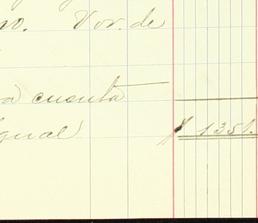 no. Vor. de
a cuenta
igual $ 1351.